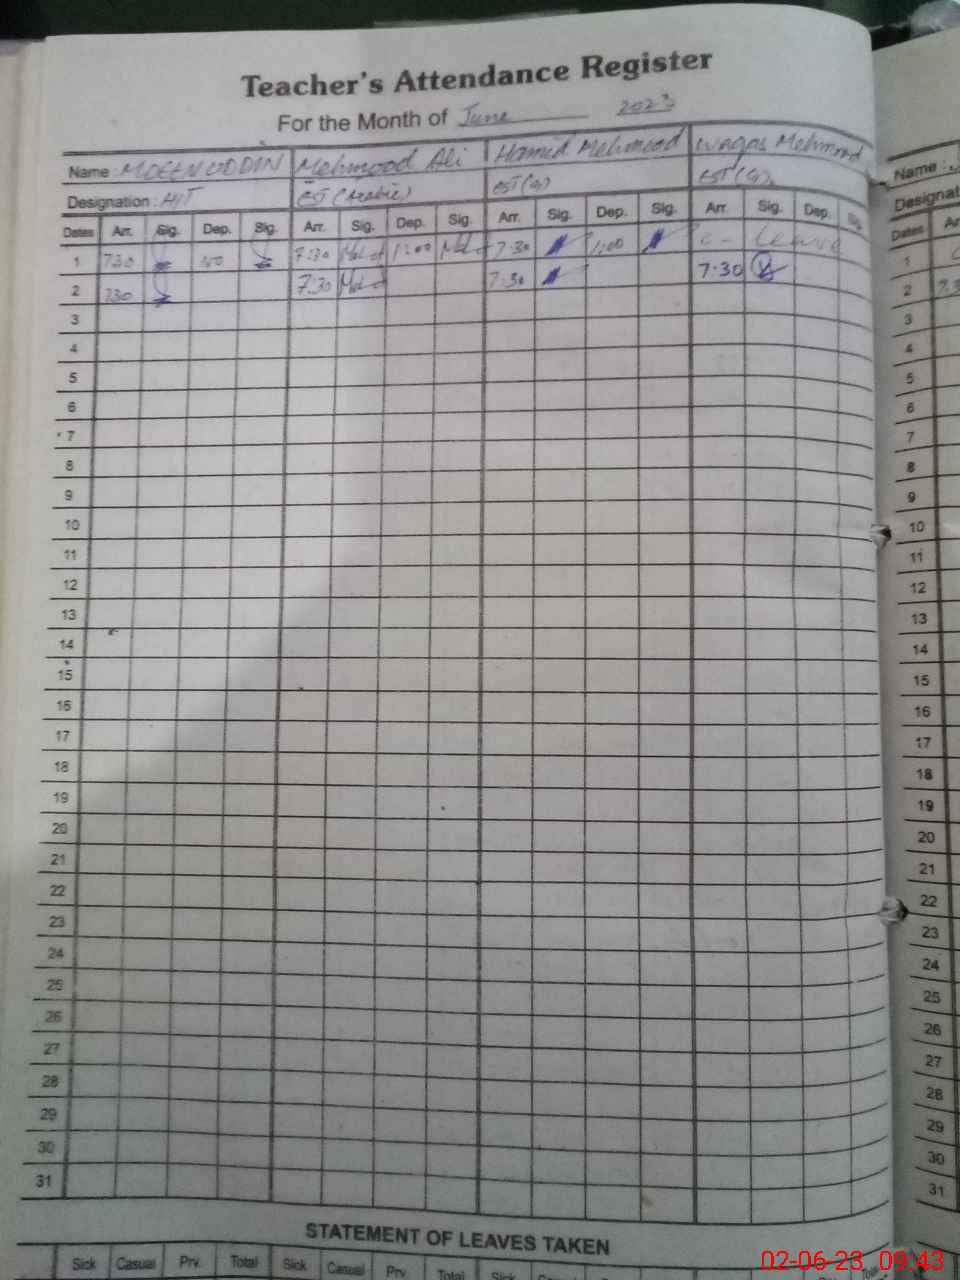 Teacher's Attendance Register
For the Month of June 2023
Name : MOEENUDDIN Mehmood Ali Hamid Mehmood Waqas Mehmood Name :
Designation : EST (Arabic) EST (G) EST (G) Designat
Dates Arr. Sig. Dep. Sig. Arr. Sig. Dep. Sig. Arr. Sig. Dep. Sig. Arr. Sig. Dep. Sig. Dates
1 730 100 7:30 1:00 7:30 1:00 C- Leave 1
2 730 7:30 7:30 7:30 2
3 3
4 4
5 5
6 6
7 7
8 8
9 9
10 10
11 11
12 12
13 13
14 14
15 15
16 16
17 17
18 18
19 19
20 20
21 21
22 22
23 23
24 24
25 25
26 26
27 27
28 28
29 29
30 30
31 31
STATEMENT OF LEAVES TAKEN
Sick Casual Prv. Total Sick Casual Prv. Total Sick
02-06-23 09:43